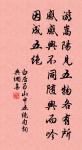 游嵩陽見五物各有所
感感興不同隨興而吟
因成五絕
白居易山中五絕句